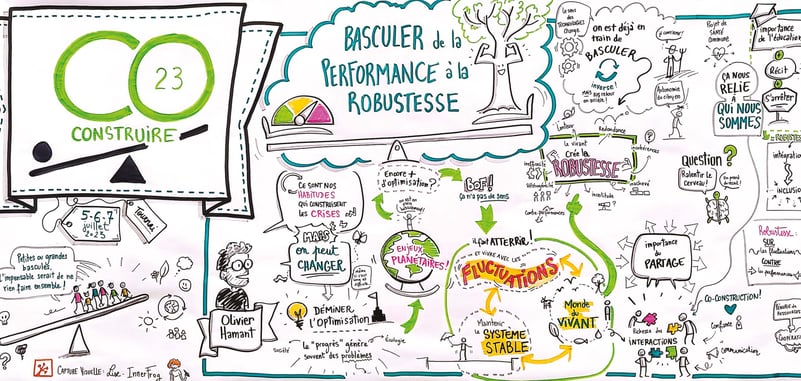 CO
23
CONSTRUIRE
5.6.7
juillet
2023
Tournai
Petites ou grandes
bascules,
l'impensable serait de ne
rien faire ensemble!
BASCULER de la
PERFORMANCE à la
ROBUSTESSE
Ce sont nos
HABITUDES
qui construisent
les CRISES
MAIS
on peut
CHANGER
Olivier
Hamant
DÉMINER
l'OPTIMISATION
société
écologie
le "progrès" génère
souvent des problèmes
Encore +
d'optimisation?
ENJEUX
PLANÉTAIRES!
BOF!
ça n'a pas de sens
il faut ATTERRIR!
ET VIVRE AVEC LES
FLUCTUATIONS
Maintenir
le SYSTÈME
STABLE
Monde
du VIVANT
on est déjà en
train de
BASCULER
inverse!
le vivant
Crée la
ROBUSTESSE
Redondance
incohérences
inachevé
Contre-performances
Autonomie
du citoyen
Projet de
SANTÉ
commune
ÇA NOUS
RELIE
À
QUI NOUS
SOMMES
Question?
Ralentir le
Cerveau!
importance
du
PARTAGE
Richesse des
INTERACTIONS
CO-CONSTRUCTION!
confiance
communication
importance
de l'éducation
Récit
S'arrêter
intégration
INCLUSION
Robustesse:
SUR
les fluctuations
CONTRE
la performance